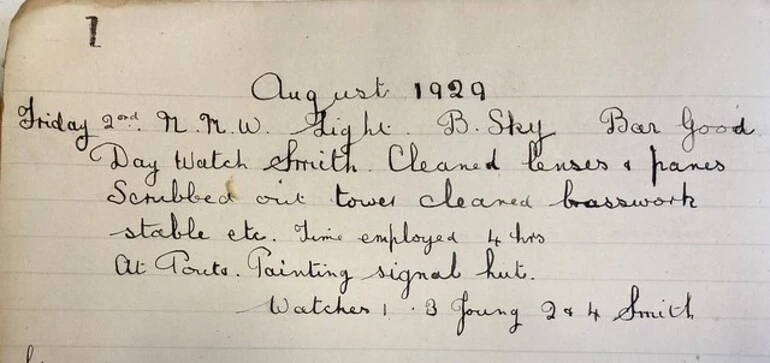 1
August 1929
Friday 2nd. N.N.W. Light. B. Sky Bar Good
Day Watch Smith. Cleaned lenses & panes
Scrubbed out tower cleaned brasswork
stable etc. Time employed 4 hrs
At Painting signal hut.
Watches 1 . 3 Young 2 & 4 Smith